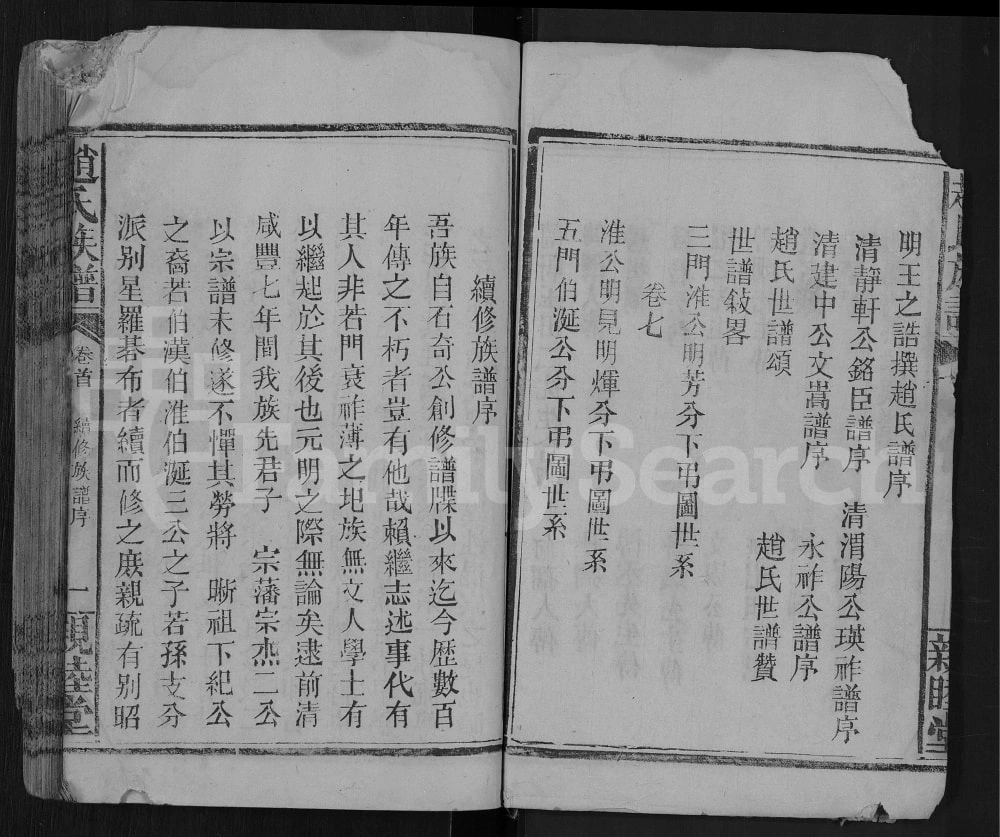 明王之誥撰趙氏譜序
清靜軒公銘臣譜序　清渭陽公瑛祚譜序
清建中公文嵩譜序　永祚公譜序
趙氏世譜頌　趙氏世譜贊
世譜敍畧
三門淮公明芳分下弔圖世系
卷七
淮公明見明煇分下弔圖世系
五門伯涎公分下弔圖世系
續修族譜序
吾族自石奇公創修譜牒以來迄今歷數百
年傳之不朽者豈有他哉賴繼志述事代有
其人非若門衰祚薄之地族無文人學士有
以繼起於其後也元明之際無論矣逮前清
咸豐七年間我族先君子　宗藩宗杰二公
以宗譜未修遂不憚其勞將　晰祖下紀公
之裔若伯漢伯淮伯涎三公之子若孫支分
派别星羅碁布者續而修之庻親疏有别昭
趙氏族譜
卷首
續修族譜序
一
親睦堂
FamilySearch